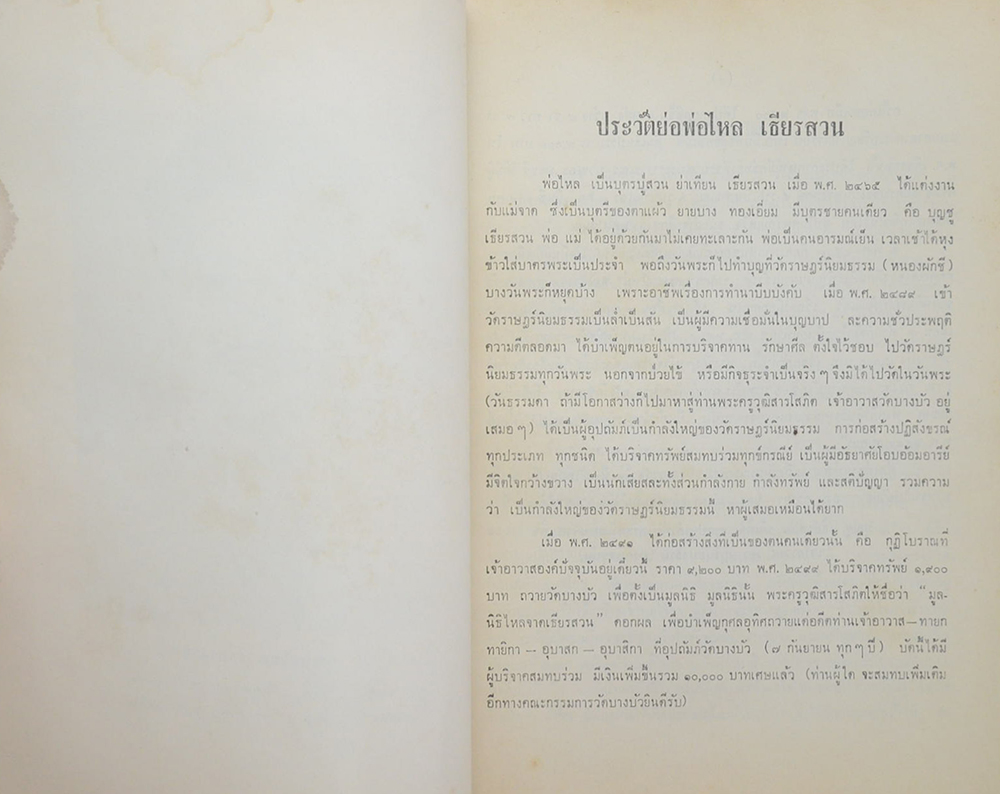 ประวัติย่อพ่อไหล เธียรสวน
พ่อไหล เป็นบุตรปู่สวน ย่าเทียน เธียรสวน เมื่อ พ.ศ. ๒๔๖๕ ได้แต่งงาน
กับแม่จาด ซึ่งเป็นบุตรีของตาแผ้ว ยายบาง ทองเอี่ยม มีบุตรชายคนเดียว คือ บุญชู
เธียรสวน พ่อ แม่ ได้อยู่ด้วยกันมาไม่เคยทะเลาะกัน พ่อเป็นคนอารมณ์เย็น เวลาเช้าได้หุง
ข้าวใส่บาตรพระเป็นประจำ พอถึงวันพระก็ไปทำบุญที่วัดราษฎร์นิยมธรรม (หนองผักชี)
บางวันพระก็หยุดบ้าง เพราะอาชีพเรื่องการทำนาบีบบังคับ เมื่อ พ.ศ. ๒๔๘๙ เข้า
วัดราษฎร์นิยมธรรมเป็นล่ำเป็นสัน เป็นผู้มีความเชื่อมั่นในบุญบาป ละความชั่วประพฤติ
ความดีตลอดมา ได้บำเพ็ญตนอยู่ในการบริจาคทาน รักษาศีล ตั้งใจไว้ชอบ ไปวัดราษฎร์
นิยมธรรมทุกวันพระ นอกจากป่วยไข้ หรือมีกิจธุระจำเป็นจริง ๆ จึงมิได้ไปวัดในวันพระ
(วันธรรมดา ถ้ามีโอกาสว่างก็ไปมาหาสู่ท่านพระครูวุฒิสารโสภิต เจ้าอาวาสวัดบางบัว อยู่
เสมอ ๆ) ได้เป็นผู้อุปถัมภ์เป็นกำลังใหญ่ของวัดราษฎร์นิยมธรรม การก่อสร้างปฏิสังขรณ์
ทุกประเภท ทุกชนิด ได้บริจาคทรัพย์สมทบร่วมทุกข์กรณีย์ เป็นผู้มีอัธยาศัยโอบอ้อมอารีย์
มีจิตใจกว้างขวาง เป็นนักเสียสละทั้งส่วนกำลังกาย กำลังทรัพย์ และสติปัญญา รวมความ
ว่า เป็นกำลังใหญ่ของวัดราษฎร์นิยมธรรมนี้ หาผู้เสมอเหมือนได้ยาก
เมื่อ พ.ศ. ๒๔๙๑ ได้ก่อสร้างสิ่งที่เป็นของตนคนเดียวนั้น คือ กุฏิโบราณที่
เจ้าอาวาสองค์ปัจจุบันอยู่เดี๋ยวนี้ ราคา ๙,๒๐๐ บาท พ.ศ. ๒๔๙๙ ได้บริจาคทรัพย์ ๑,๙๐๐
บาท ถวายวัดบางบัว เพื่อตั้งเป็นมูลนิธิ มูลนิธินั้น พระครูวุฒิสารโสภิตให้ชื่อว่า “มูล-
นิธิไหลจาดเธียรสวน” ดอกผล เพื่อบำเพ็ญกุศลอุทิศถวายแด่อดีตท่านเจ้าอาวาส—ทายก
ทายิกา — อุบาสก — อุบาสิกา ที่อุปถัมภ์วัดบางบัว (๗ กันยายน ทุก ๆ ปี) บัดนี้ได้มี
ผู้บริจาคสมทบร่วม มีเงินเพิ่มขึ้นรวม ๑๐,๐๐๐ บาทเศษแล้ว (ท่านผู้ใด จะสมทบเพิ่มเติม
อีกทางคณะกรรมการวัดบางบัวยินดีรับ)